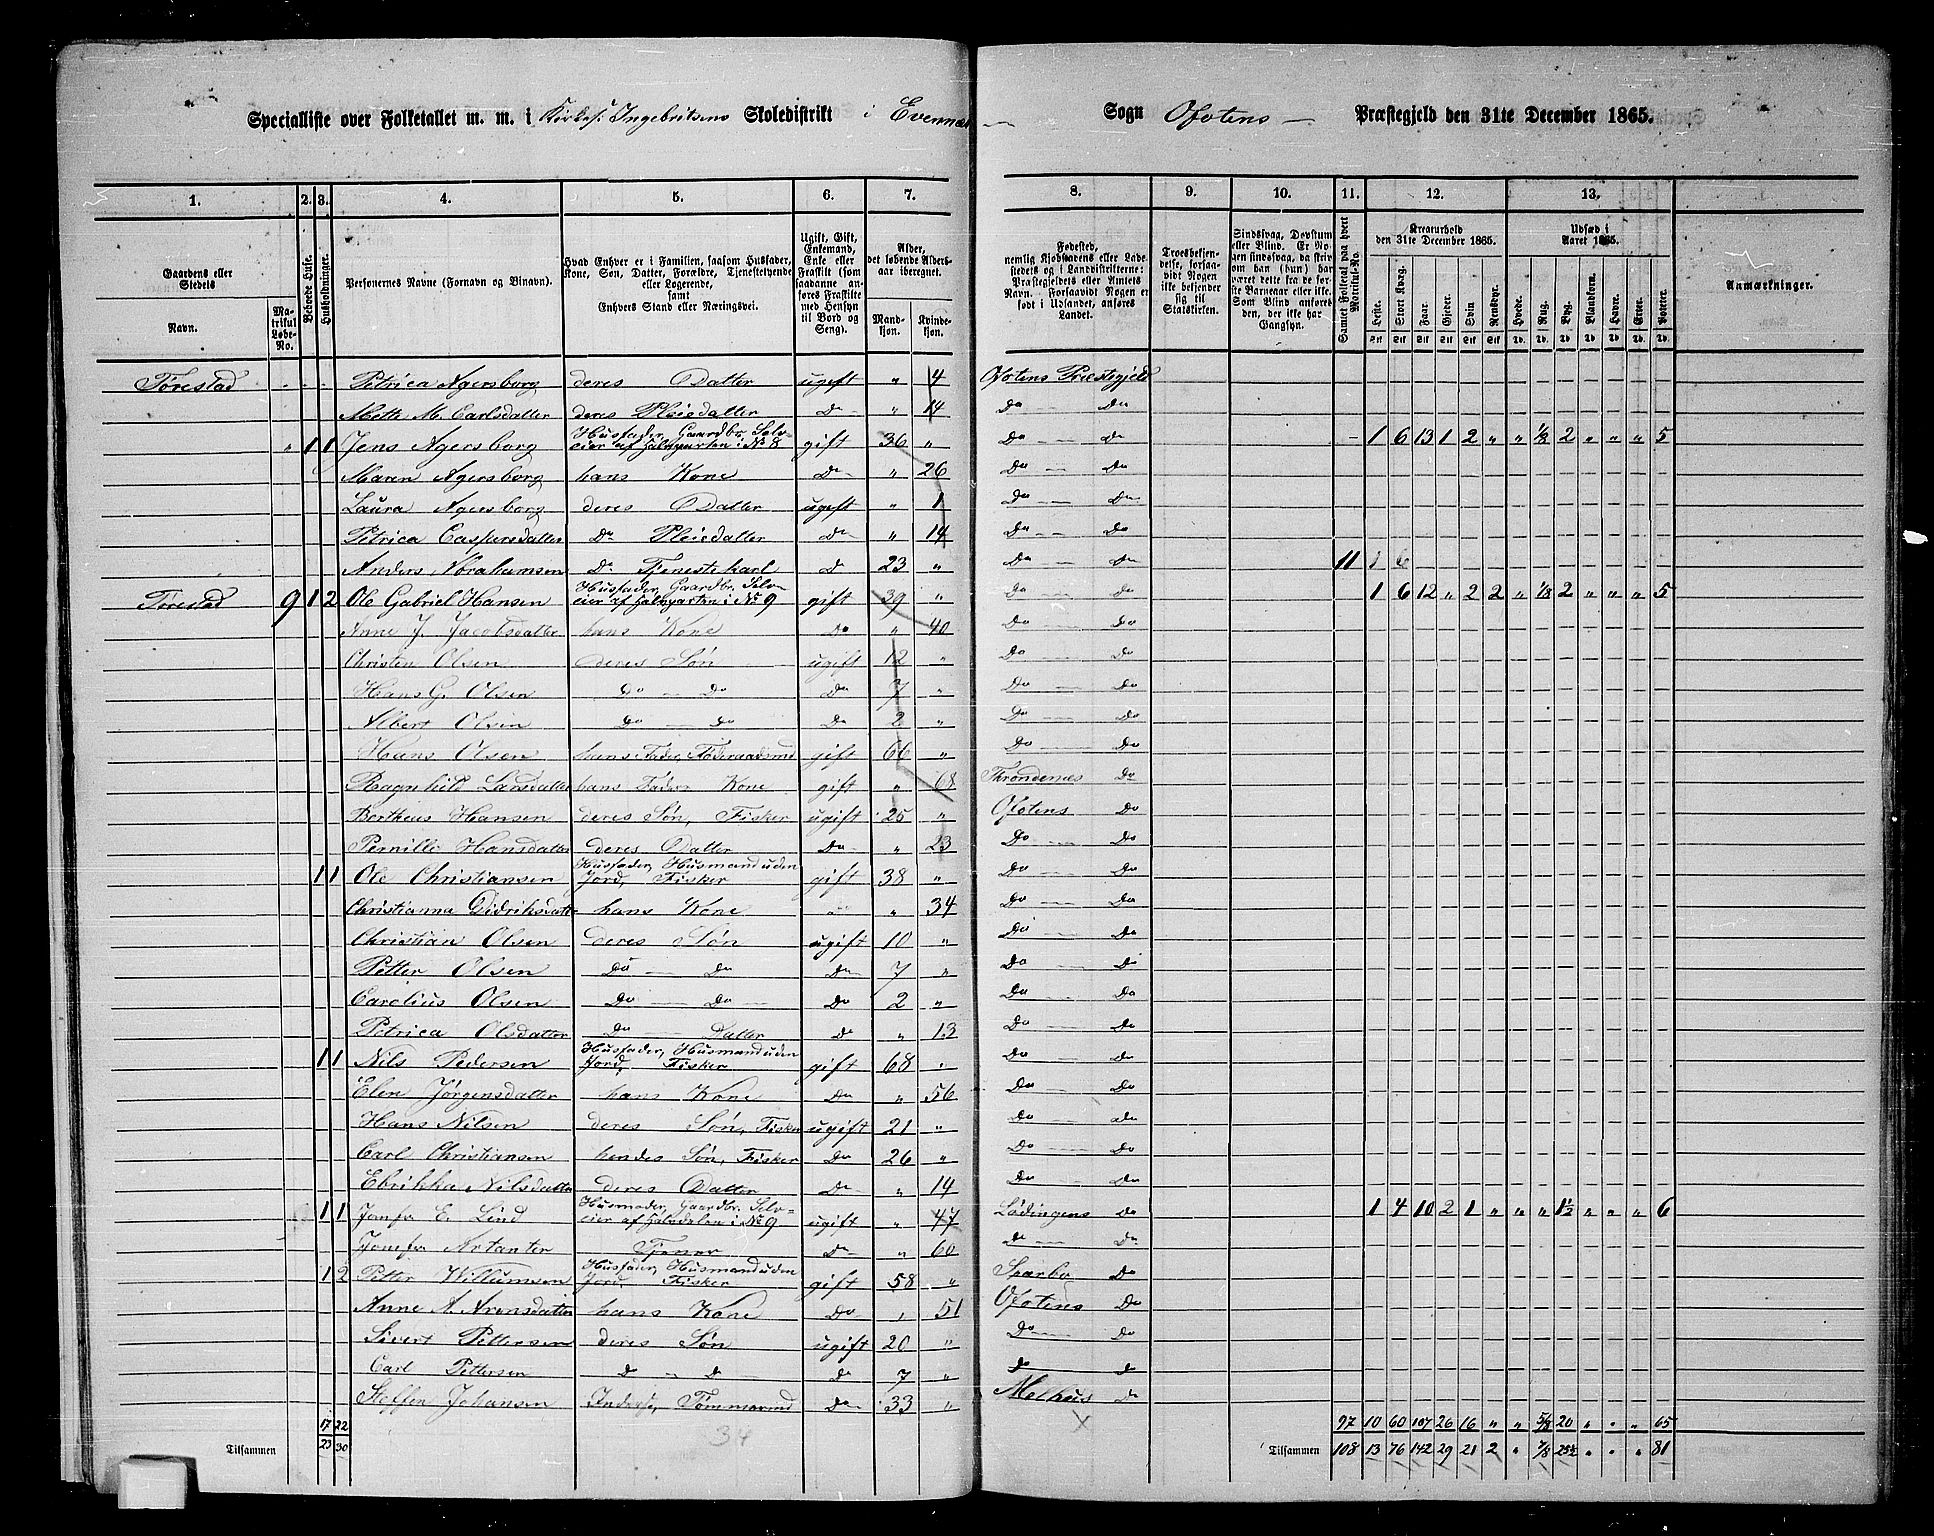 Specialliste over Folketallet m. m. i Kirkes: Ingebritsens Skoledistrikt i Evennæs Sogn Ofotens Præstegjeld den 31te December 1865.
1. 2. 3. 4. 5. 6. 7. 8. 9. 10. 11. 12. 13.
Gaardens eller Stedets
Navn.
Matrikul Løbe-No.
Beboede Huse.
Husholdninger.
Personernes Navne (Fornavn og Binavn).
Hvad Enhver er i Familien, saasom Husfader, Kone, Søn, Datter, Forældre, Tjenestetyende eller Logerende, samt Enhvers Stand eller Næringsvei.
Ugift, Gift, Enkemand, Enke eller Fraskilt (som saadanne anføres Fraskilte med Hensyn til Bord og Seng).
Alder, det løbende Alders-aar iberegnet.
Mandkjøn. Kvindekjøn.
Fødested, nemlig Kjøbstadens eller Ladestedets og i Landdistrikterne: Præstegjeldets eller Amtets Navn. Forsaavidt Nogen er født i Udlandet, anføres Landet.
Troesbekjendelse, forsaavidt Nogen ikke bekjender sig til Statskirken.
Sindssvag, Døvstum eller Blind. Er Nogen sindssvag, da skrives om han (hun) har været dette fra de første Barneaar eller ikke. Som Blind anføres den, der ikke har Gangsyn.
Samlet Folketal paa hvert Matrikul-No.
Kreaturhold den 31te December 1865.
Heste. Stort Kvæg. Faar. Gjeder. Svin. Rensdyr.
Udsæd i Aaret 1865.
Hvede. Rug. Byg. Blandkorn. Havre. Erter. Poteter.
Anmærkninger.
Tørestad Petrica Agersborg deres Datter ugift " 4 Ofotens Præstegjeld
Meth M. Carlsdatter deres Pleiedatter Do " 14 Do Do
" 1 1 Jens Agersborg Husfader, Gaardbr. Selveier af Halvparten i No 8 gift 36 " Do Do 1 6 13 1 2 " " 1/8 2 " " " 5
Maren Agersborg hans Kone Do " 26 Do Do
Laura Agersborg deres Datter ugift " 1 Do Do
Petrica Caspersdatter Do Pleiedatter Do " 14 Do Do
Anders Abrahamsen Do Tjenestekarl Do 23 " Do Do 11
Tørestad 9 1 2 Ole Gabriel Hansen Husfader, Gaardbr. Selveier af Halvparten i No 9 gift 39 " Do Do 1 6 12 " 2 2 " 1/8 2 " " " 5
Anne J. Jacobsdatter hans Kone Do " 40 Do Do
Christen Olsen deres Søn ugift 12 " Do Do
Hans G. Olsen Do Do Do 7 " Do Do
Albert Olsen Do Do Do 2 " Do Do
Hans Olsen hans Fader, Føderaadsmd gift 66 " Do Do
Ragnhild Larsdatter hans Faders Kone gift " 68 Throndenæs Do
Bertheus Hansen deres Søn, Fisker ugift 25 " Ofotens Do
Pernille Hansdatter deres Datter Do " 23 Do Do
1 1 Ole Christiansen Husfader, Husmand uden Jord, Fisker gift 38 " Do Do
Christianna Didriksdatter hans Kone " " 34 Do Do
Christian Olsen deres Søn ugift 10 " Do Do
Petter Olsen Do Do Do 7 " Do Do
Carolius Olsen Do Do Do 2 " Do Do
Petrica Olsdatter Do Datter Do " 13 Do Do
1 1 Nils Pedersen Husfader, Husmand uden Jord, Fisker gift 68 " Do Do
Elen Jørgensdatter hans Kone Do " 56 Do Do
Hans Nilsen deres Søn, Fisker ugift 21 " Do Do
Carl Christiansen hendes Søn, Fisker Do 26 " Do Do
Ebrikka Nilsdatter deres Datter Do " 14 Do Do
1 1 Jomfr E. Lind Husmoder, Gaardbr. Selveier af Halvdelen i No 9 ugift " 47 Lødingens Do 1 4 10 2 1 " " " 1½ " " " 6
Jomfr Artanter Tjener Do " 60 Do Do
1 2 Petter Willumsen Husfader, Husmand uden Jord, Fisker gift 58 " Skarbo Do
Anne A. Arensdatter hans Kone Do " 51 Ofotens Do
Sivert Pettersen deres Søn ugift 20 " Do Do
Carl Pettersen Do Do Do 7 " Do Do
Steffen Johansen Inderst, Tømmermd Do 33 " Melhus Do
17 22 97 10 60 107 26 16 " " 5/8 20 " " " 65
Tilsammen 23 30 34 Tilsammen 108 13 76 142 29 21 2 " 7/8 25½ " " " 81